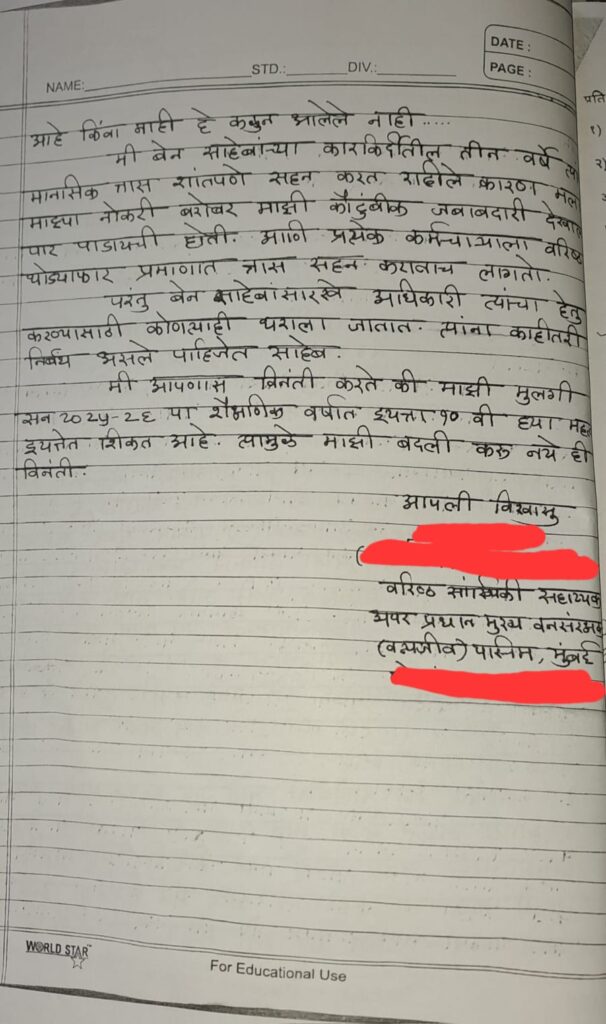 DATE :
PAGE :
NAME: STD.: DIV.:
आहे किंवा नाही हे कळुन आलेले नाही.....
मी बेन साहेबांच्या कारकिर्दीतील तीन वर्षे त्यां
मानसिक त्रास शांतपणे सहन करत राहीले कारण मला
माझ्या नोकरी बरोबर माझी कौटुंबीक जबाबदारी देखील
पार पाडायची होती. आणि प्रत्येक कर्मचाऱ्याला वरिष्ठ
थोड्याफार प्रमाणात त्रास सहन करावाच लागतो.
परंतु बेन साहेबांसारखे अधिकारी त्यांचा हेतु
करण्यासाठी कोणत्याही थराला जातात. त्यांना काहीतरी
निर्बंध असले पाहिजेत साहेब.
मी आपणास विनंती करते की माझी मुलगी
सन २०२५-२६ या शैक्षणिक वर्षात इयत्ता १० वी ह्या
इयत्तेत शिकत आहे. त्यामुळे माझी बदली करू नये ही
विनंती.
आपली विश्वासु
वरिष्ठ सांख्यिकी सहाय्यक
अपर प्रधान मुख्य वनसंरक्षक
(वन्यजीव) पश्चिम, मुंबई
प्रति
१)
२)
WORLD STAR
For Educational Use